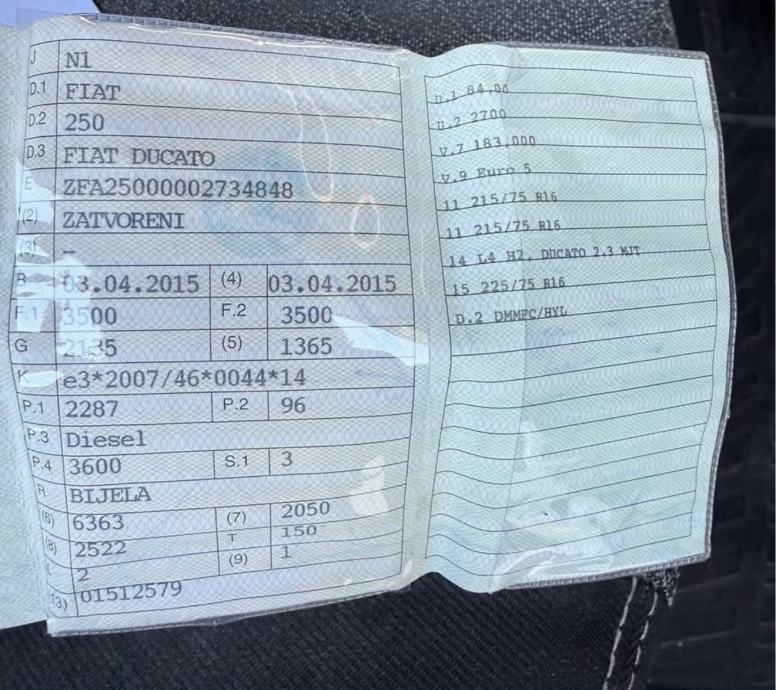 J N1
D.1 FIAT
D.2 250
D.3 FIAT DUCATO
E ZFA25000002734848
(2) ZATVORENI
(3) –
B 03.04.2015 (4) 03.04.2015
F.1 3500 F.2 3500
G 2135 (5) 1365
K e3*2007/46*0044*14
P.1 2287 P.2 96
P.3 Diesel
P.4 3600 S.1 3
R BIJELA
(6) 6363 (7) 2050
(8) 2522 T 150
L 2 (9) 1
(3) 01512579
U.1 84,00
U.2 2700
V.7 183,000
V.9 Euro 5
11 215/75 R16
11 215/75 R16
14 L4 H2, DUCATO 2,3 MJT
15 225/75 R16
D.2 DMMFC/HYL